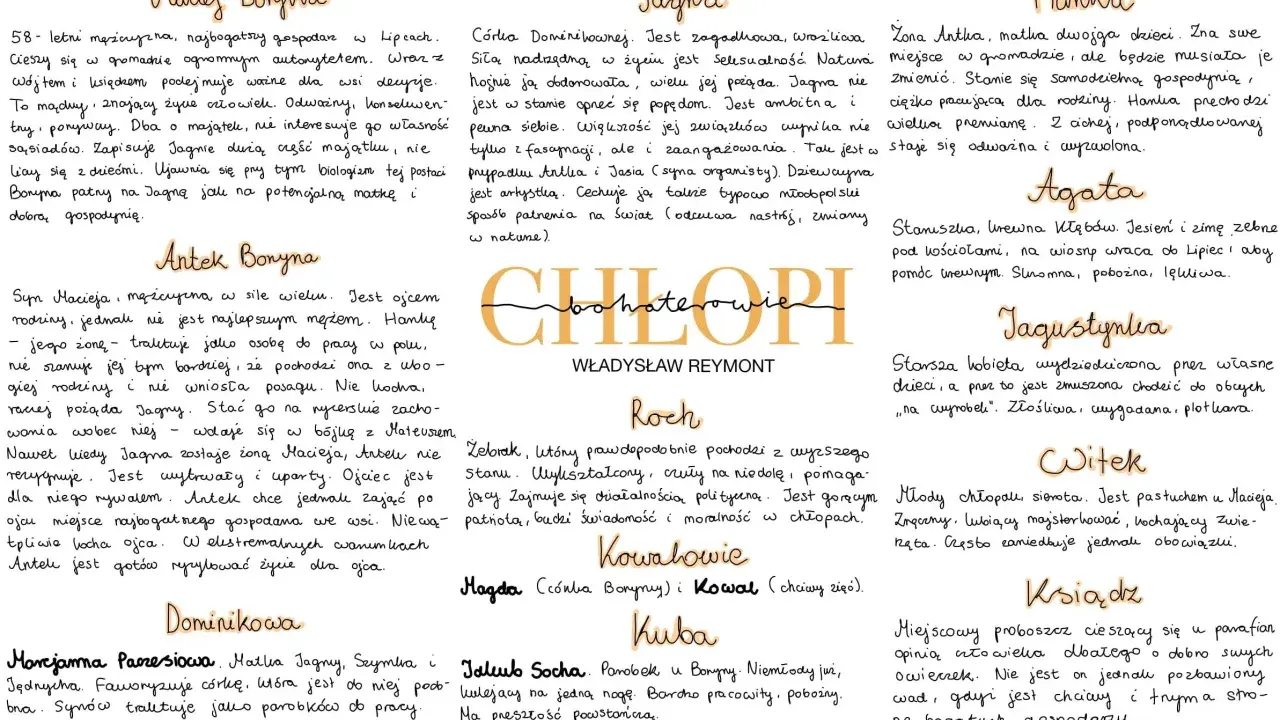 Maciej Boryna
58-letni mężczyzna, najbogatszy gospodarz w Lipcach.
Cieszy się w gromadzie ogromnym autorytetem. Wraz z
wójtem i księdzem podejmuje ważne dla wsi decyzje.
To mądry, znający życie człowiek. Odważny, konsekwen-
tny, porywczy. Dba o majątek, nie interesuje go własność
sąsiadów. Zapisuje Jagnie dużą część majątku, nie
licząc się z dziećmi. Ujawnia się przy tym biologizm tej postaci
Boryna patrzy na Jagnę jak na potencjalną matkę i
dobrą gospodynię.
Antek Boryna
Syn Macieja, mężczyzna w sile wieku. Jest ojcem
rodziny, jednak nie jest najlepszym mężem. Hankę
– jego żonę – traktuje jako osobę do pracy w polu,
nie szanuje jej tym bardziej, że pochodzi ona z ubo-
giej rodziny i nie wniosła posagu. Nie kocha,
raczej pożąda Jagny. Stać go na rycerskie zacho-
wania wobec niej – wdaje się w bójkę z Mateuszem.
Nawet kiedy Jagna zostaje żoną Macieja, Antek nie
rezygnuje. Jest wytrwały i uparty. Ojciec jest
dla niego rywalem. Antek chce jednak zająć po
ojcu miejsce najbogatszego gospodarza we wsi. Niewą-
tpliwie kocha ojca. W ekstremalnych warunkach
Antek jest gotów ryzykować życie dla ojca.
Dominikowa
Marcjanna Paczesiowa. Matka Jagny, Szymka i
Jędrzycha. Faworyzuje córkę, która jest do niej podo-
bna. Synów traktuje jako parobków do pracy.
Jagna
Córka Dominikownej. Jest zagadkowa, wrażliwa
Siłą nadrzędną w życiu jest seksualność. Natura
hojnie ją obdarowała, wielu jej pożąda. Jagna nie
jest w stanie oprzeć się popędom. Jest ambitna i
pewna siebie. Większość jej związków wynika nie
tylko z fascynacji, ale i zaangażowania. Tak jest w
przypadku Antka i Jasia (syna organisty). Dziewczyna
jest artystką. Cechuje ją także typowo młodopolski
sposób patrzenia na świat (odczuwa nastrój, zmiany
w naturze).
CHŁOPI
bohaterowie
WŁADYSŁAW REYMONT
Roch
Żebrak, który prawdopodobnie pochodzi z wyższego
stanu. Wykształcony, czuły na niedolę, pomaga-
jący. Zajmuje się działalnością polityczną. Jest gorącym
patriotą, budzi świadomość i moralność w chłopach.
Kowalowie
Magda (córka Boryny) i Kowal (chciwy zięć).
Kuba
Jakub Socha. Parobek u Boryny. Niemłody już,
kulejący na jedną nogę. Bardzo pracowity, pobożny.
Ma przeszłość powstańczą.
Hanka
Żona Antka, matka dwojga dzieci. Zna swe
miejsce w gromadzie, ale będzie musiała je
zmienić. Stanie się samodzielną gospodynią,
ciężko pracującą dla rodziny. Hanka przechodzi
wielką przemianę. Z cichej, podporządkowanej
staje się odważna i wyzwolona.
Agata
Staruszka, krewna Kłębów. Jesień i zimę żebrze
pod kościołami, na wiosnę wraca do Lipiec, aby
pomóc krewnym. Skromna, pobożna, lękliwa.
Jagustynka
Starsza kobieta wydziedziczona przez własne
dzieci, a przez to jest zmuszona chodzić do obcych
„na wyrobek". Złośliwa, wygadana, plotkara.
Witek
Młody chłopak, sierota. Jest pastuchem u Macieja.
Zręczny, lubiący majsterkować, kochający zwie-
rzęta. Często zaniedbuje jednak obowiązki.
Ksiądz
Miejscowy proboszcz cieszący się u parafian
opinią człowieka dbałego o dobro swych
owieczek. Nie jest on jednak pozbawiony
wad, gdyż jest chciwy i trzyma stro-
nę bogatych gospodarzy.